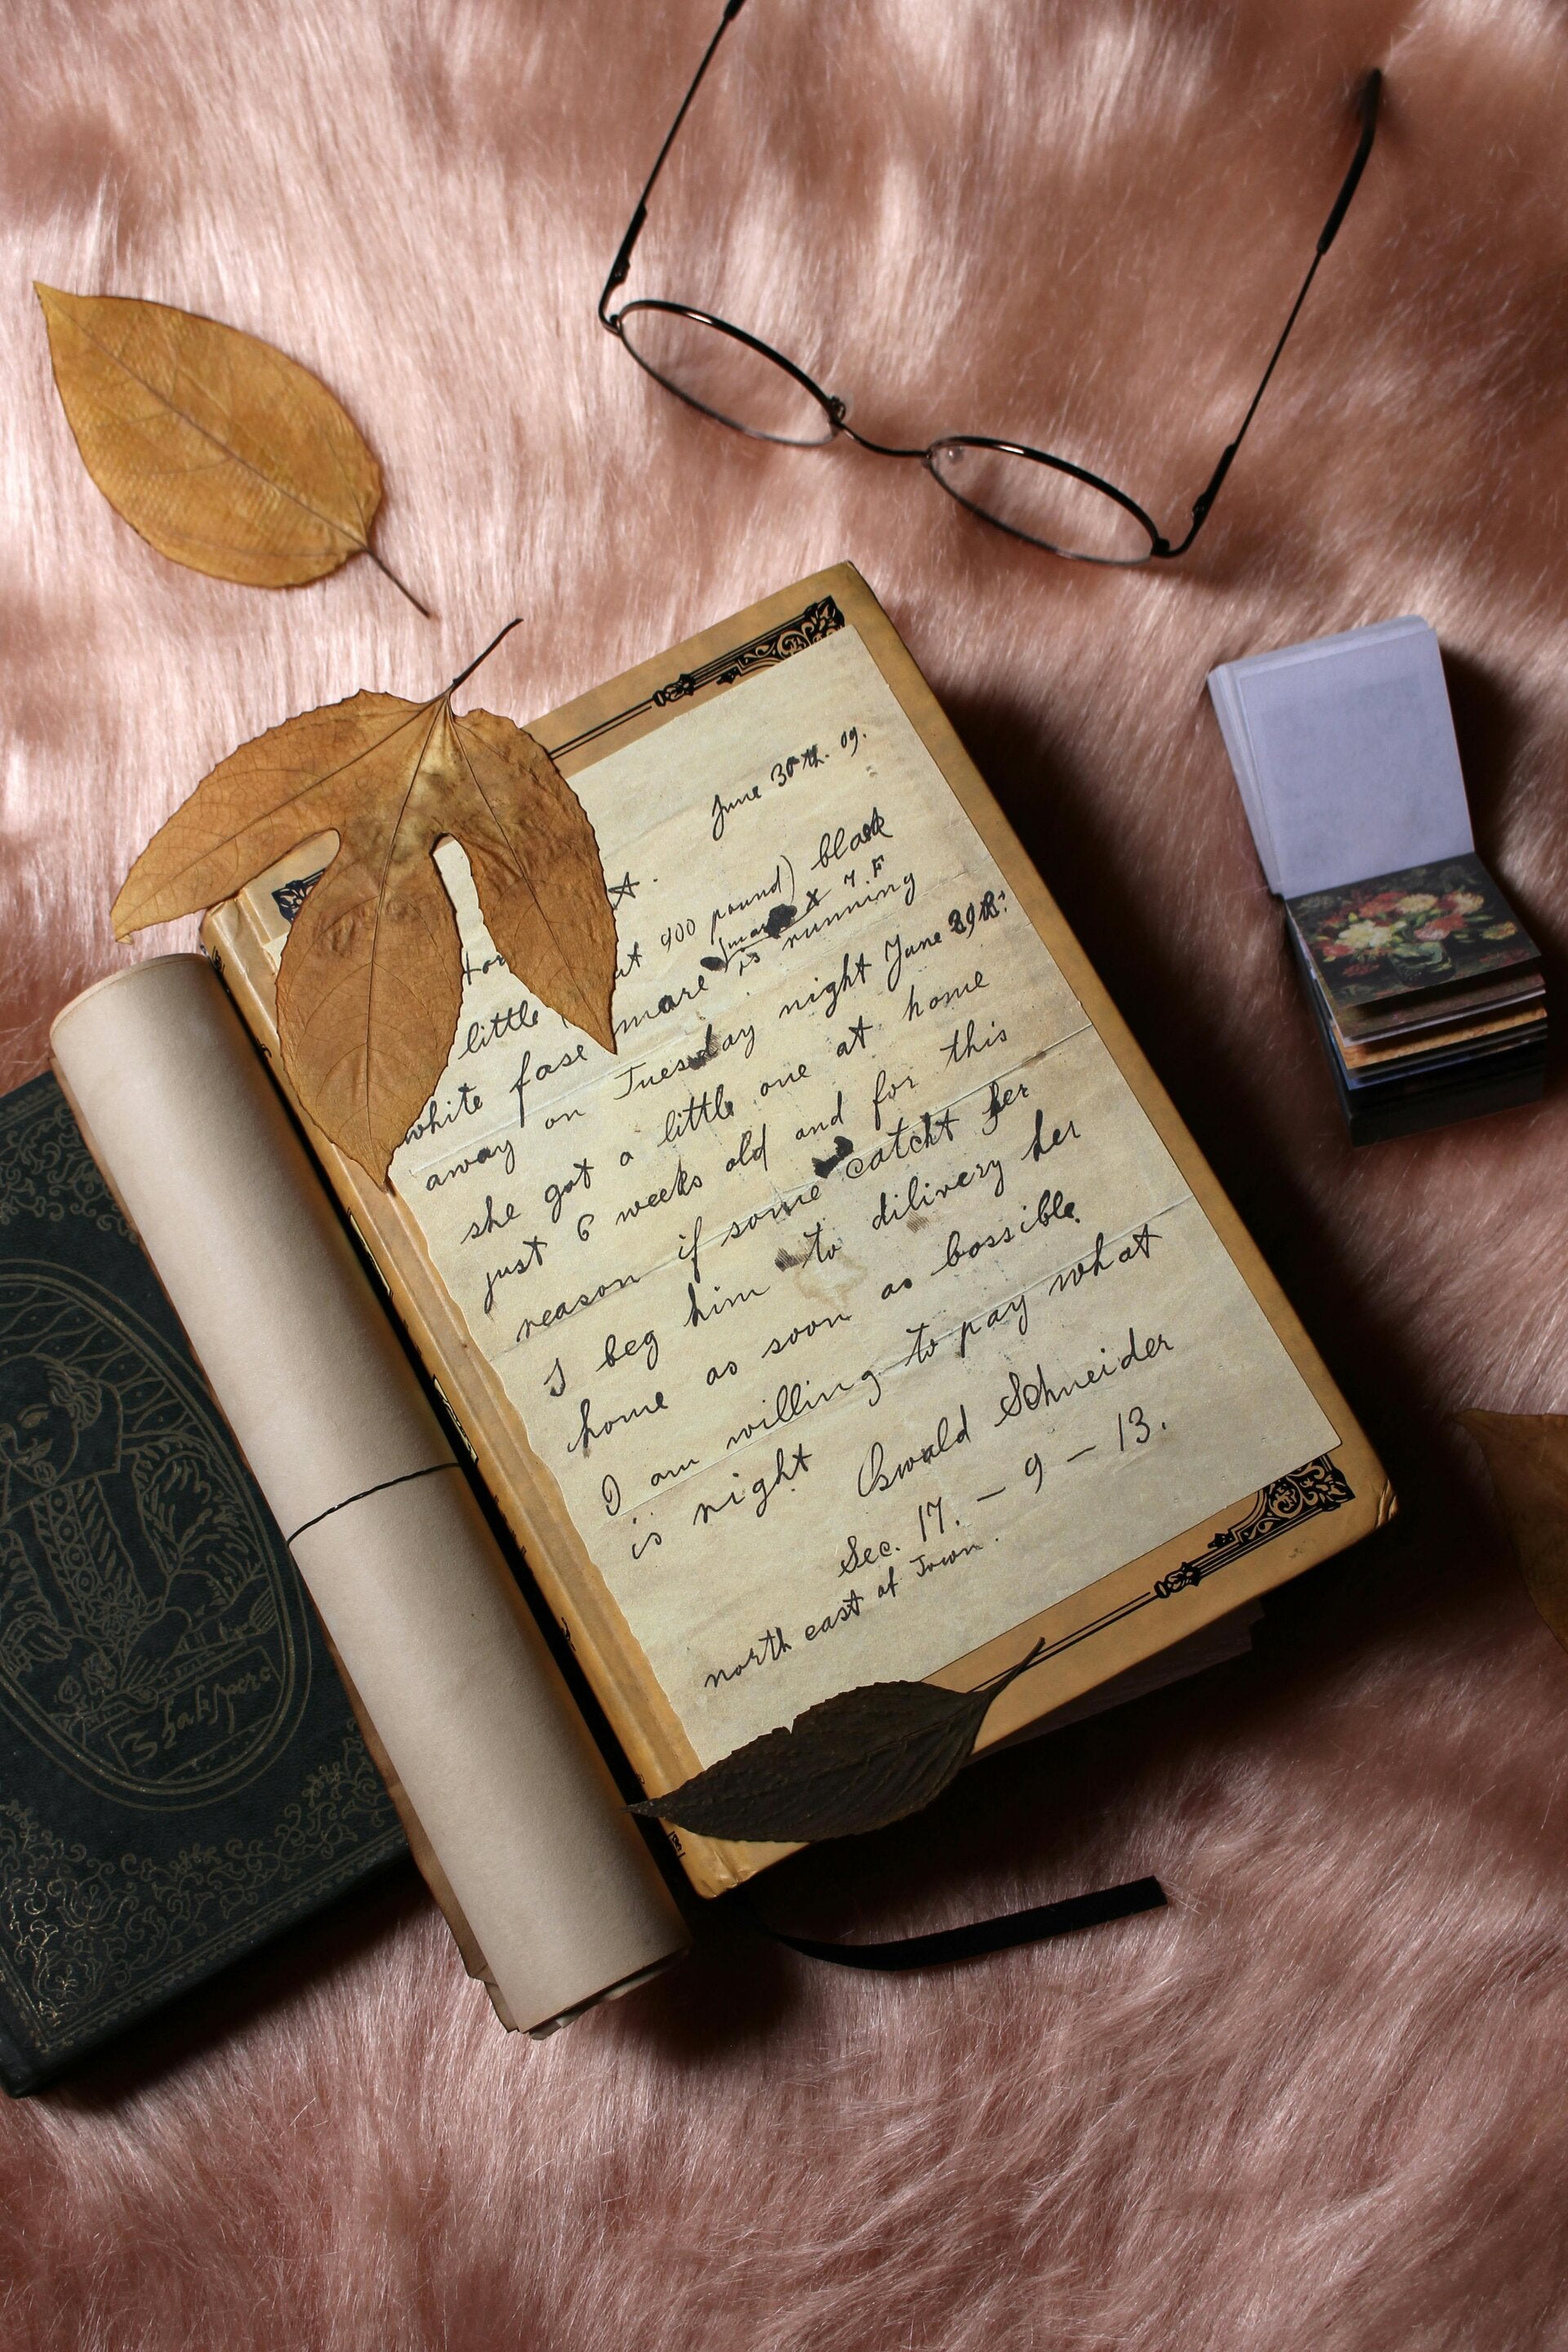 June 30th. 09.
little 900 pound) black
white fase mare is running
away on Tuesday night June 29th.
she got a little one at home
just 6 weeks old and for this
reason if some catcht her
I beg him to dilivery her
home as soon as bossible.
I am willing to pay what
is right Oswald Schneider
Sec. 17. — 9 — 13.
north east of Town.